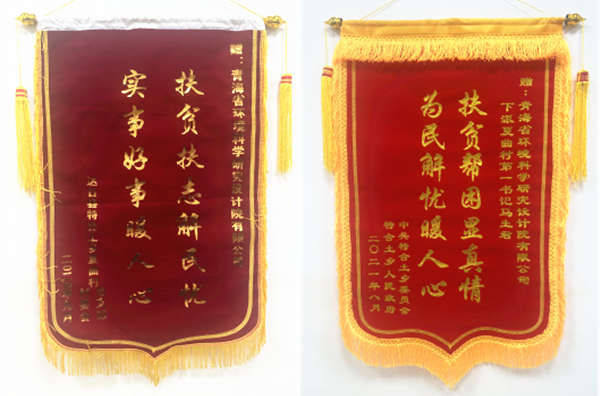 赠：青海省环境科学研究设计院有限公司
扶贫扶志解民忧
实事好事暖人心
赠：青海省环境科学研究设计院有限公司
下派夏曲村第一书记马生君
扶贫帮困显真情
为民解忧暖人心
中共特合土乡委员会
特合土乡人民政府
二〇二一年八月